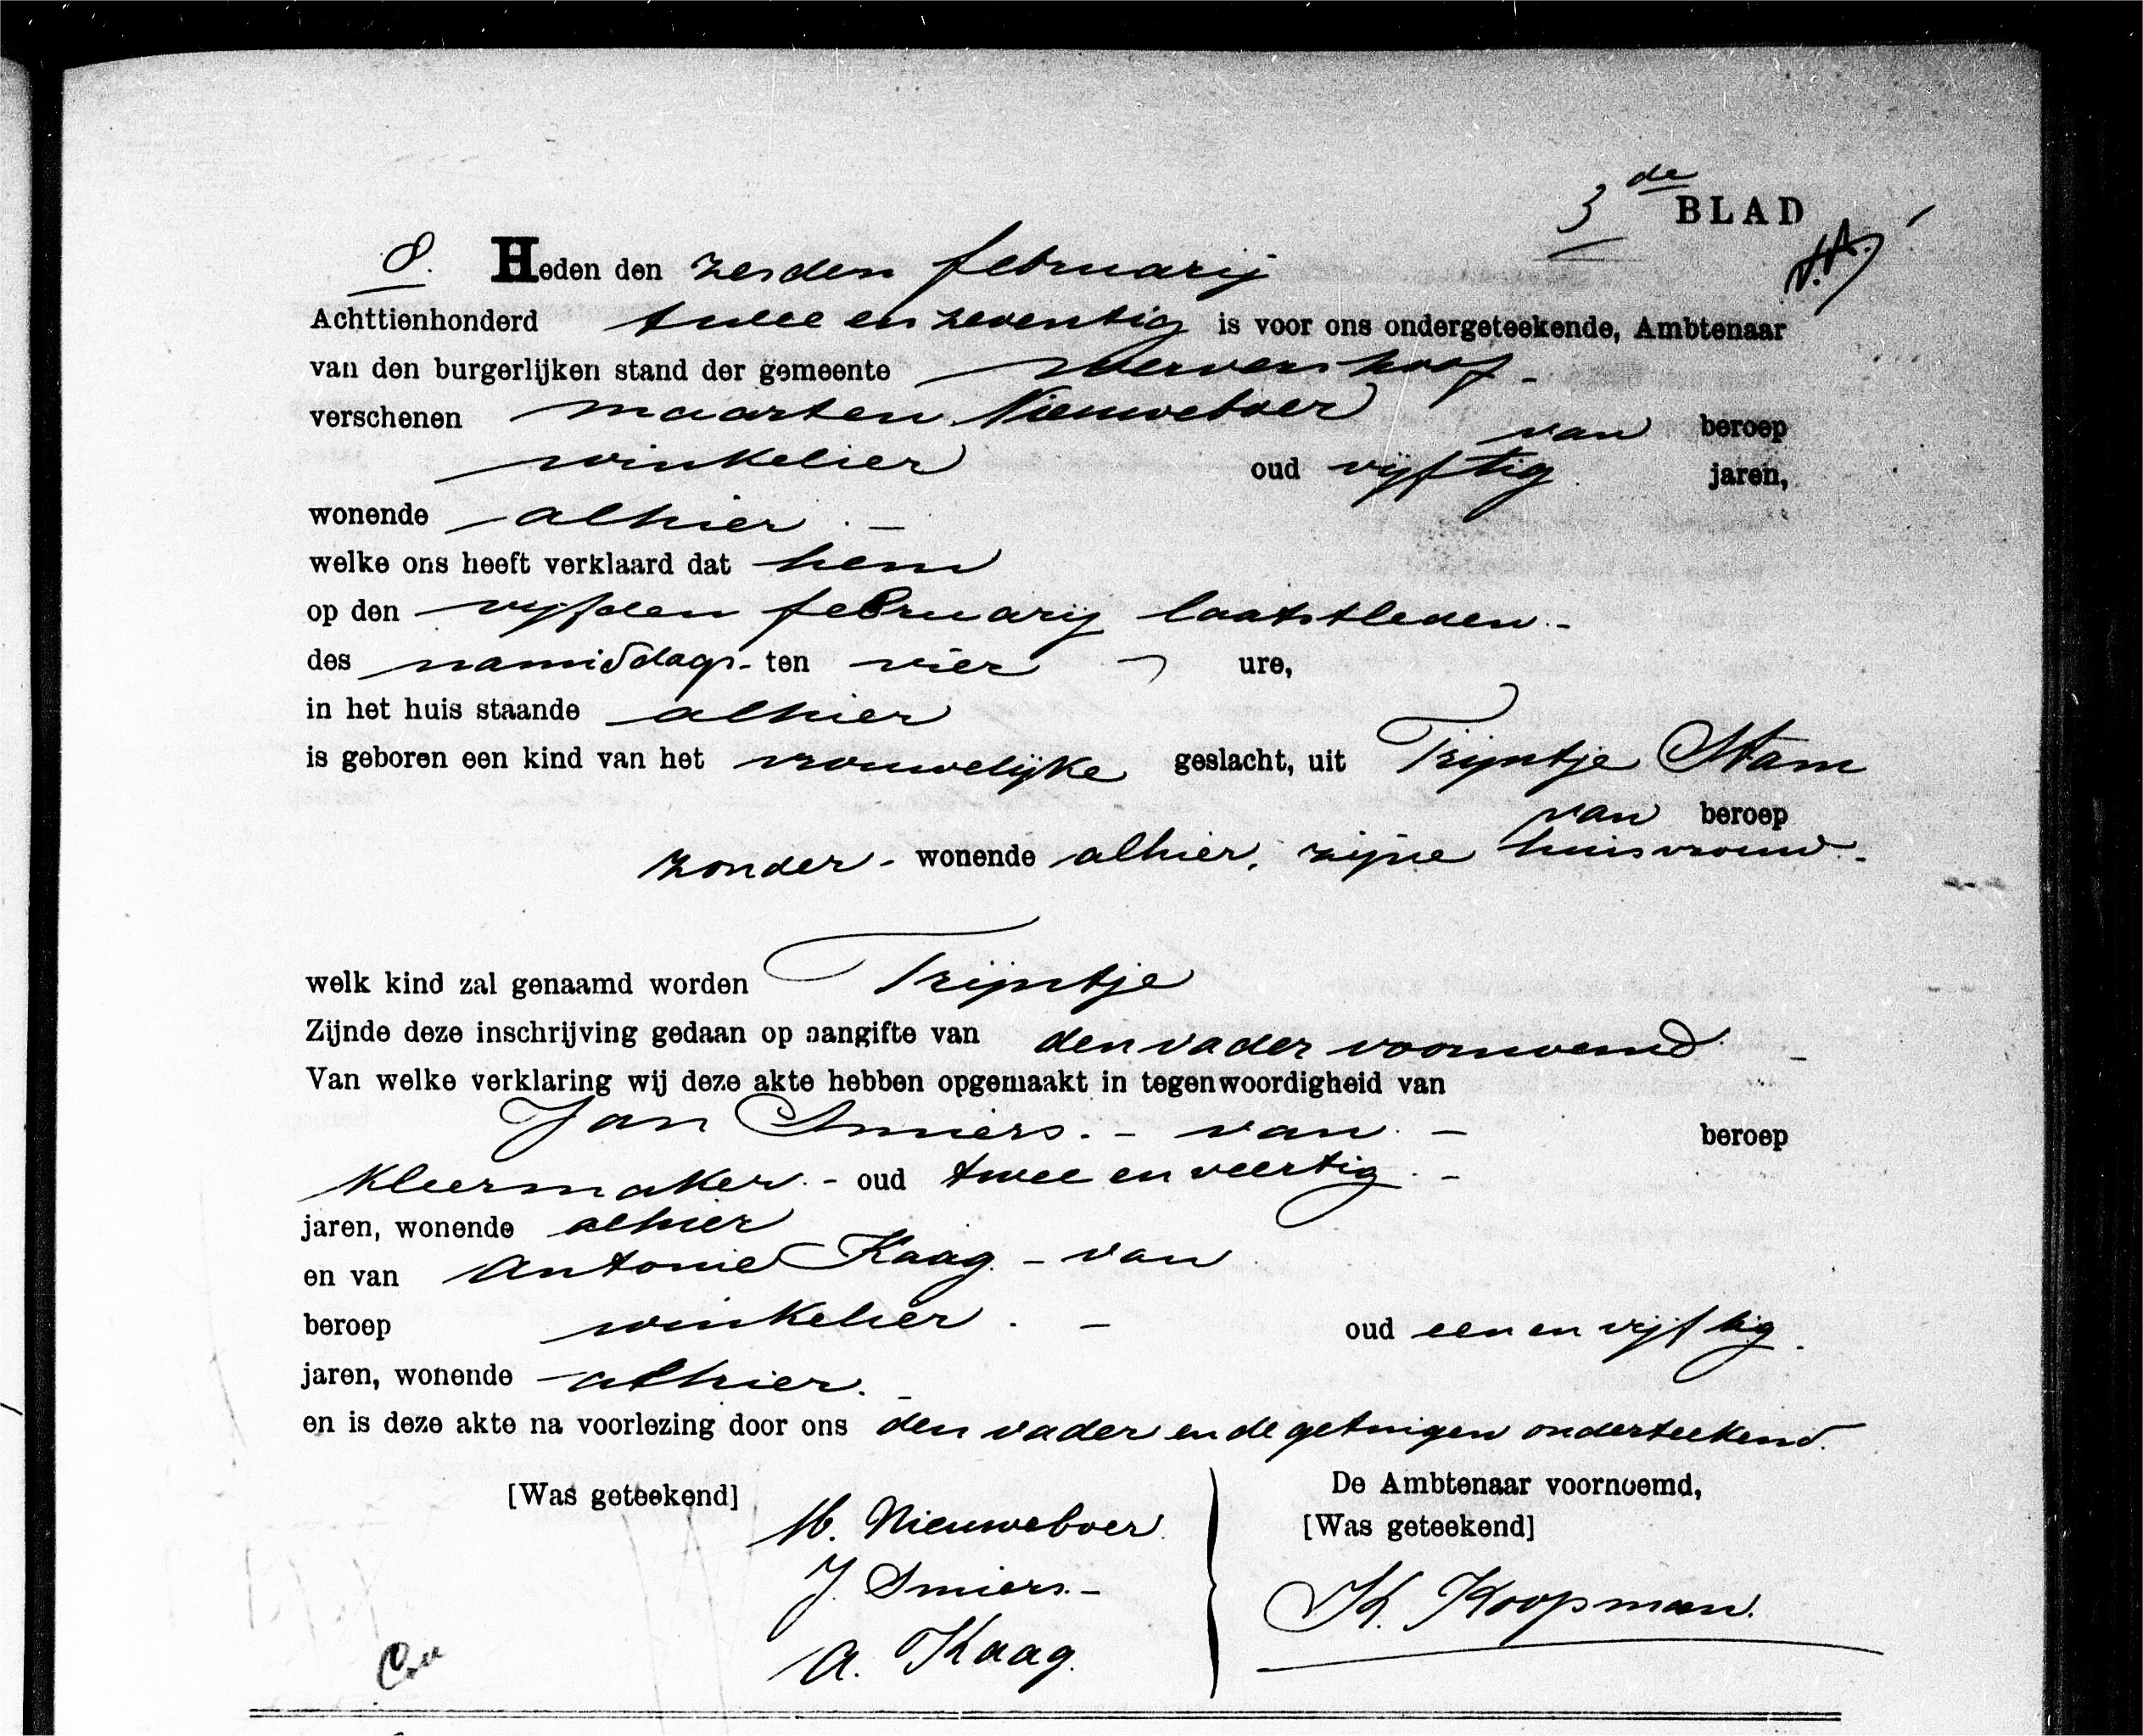 3de BLAD
8. Heden den zesden februarij
Achttienhonderd twee en zeventig is voor ons ondergeteekende, Ambtenaar
van den burgerlijken stand der gemeente Wervershoof
verschenen Maarten Nieuweboer van beroep
winkelier oud vijftig jaren,
wonende alhier. -
welke ons heeft verklaard dat hem
op den vijfden februarij laatstleden. -
des namiddags - ten vier ure,
in het huis staande alhier
is geboren een kind van het vrouwelijke geslacht, uit Trijntje Stam
van beroep
zonder - wonende alhier, zijne huisvrouw. -
welk kind zal genaamd worden Trijntje
Zijnde deze inschrijving gedaan op aangifte van den vader voornoemd -
Van welke verklaring wij deze akte hebben opgemaakt in tegenwoordigheid van
Jan Smiers. - van. - beroep
kleermaker. - oud twee en veertig. -
jaren, wonende alhier
en van Antonie Kaag. - van
beroep winkelier. - oud een en vijftig.
jaren, wonende alhier. -
en is deze akte na voorlezing door ons den vader en de getuigen onderteekend.
[Was geteekend] De Ambtenaar voornoemd,
M. Nieuweboer. [Was geteekend]
J. Smiers. -
K. Koopman.
A. Kaag.